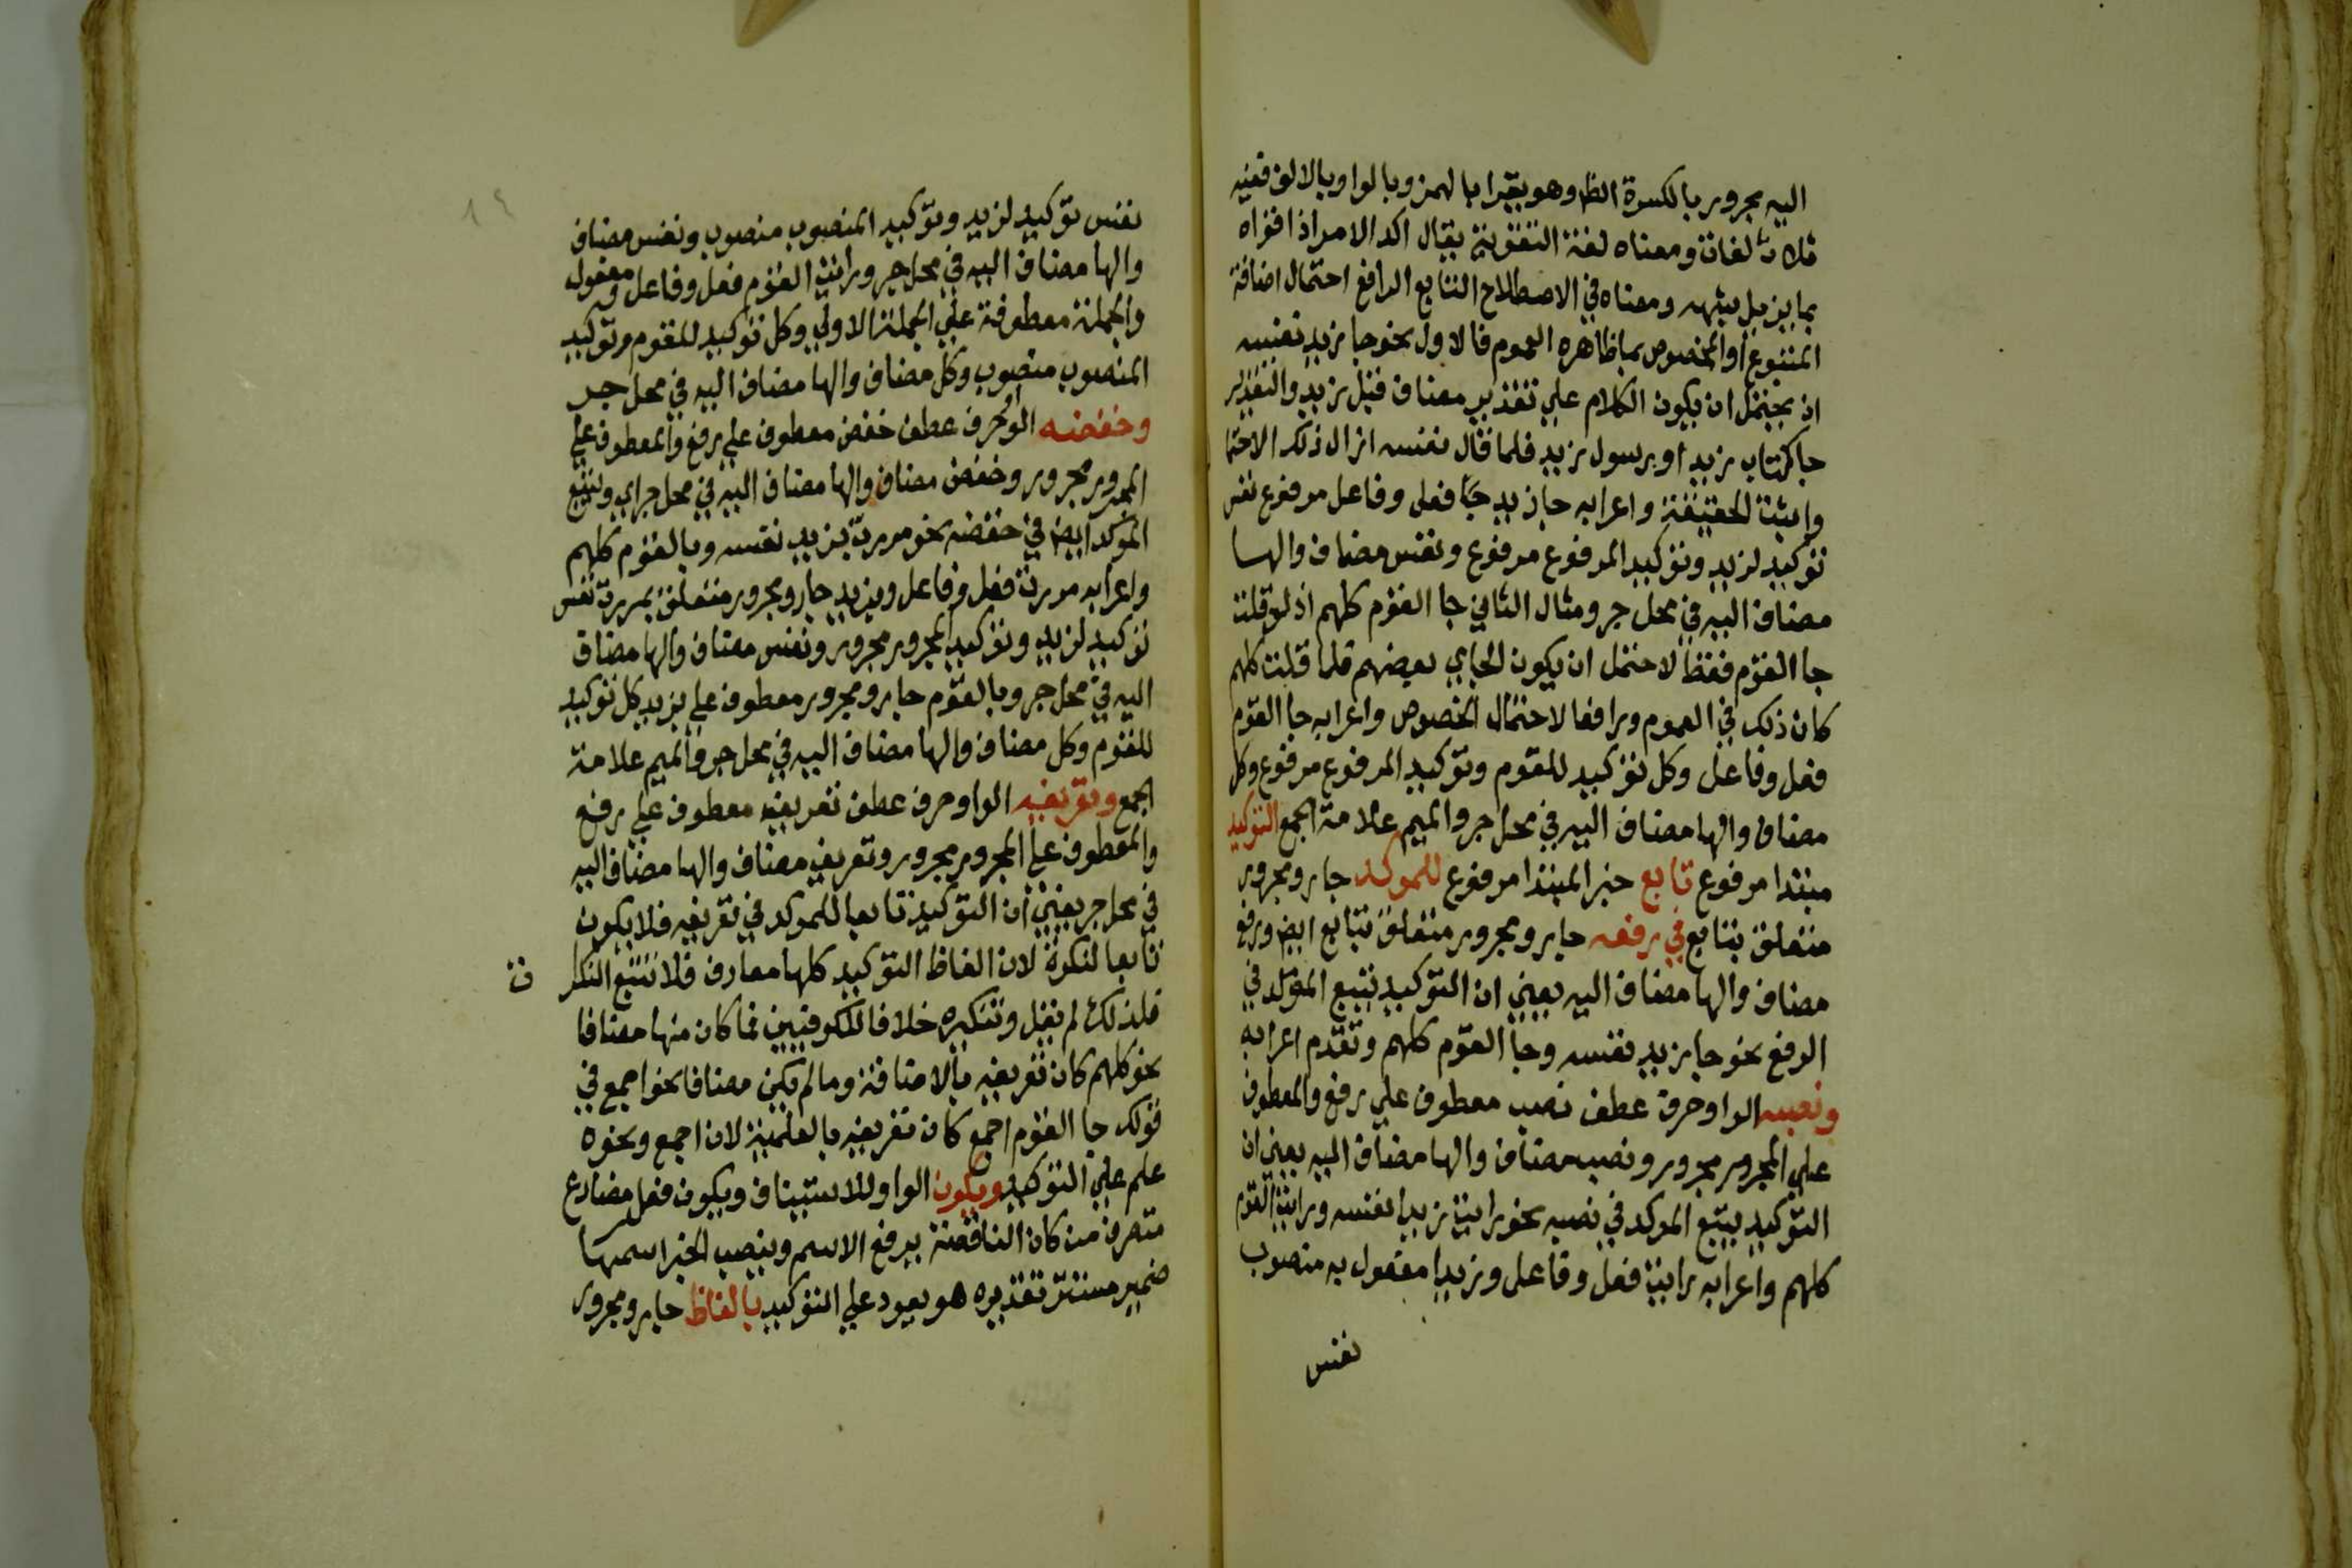 اليه مجرور بالكسرة الظ وهو يقرا بالهمز وبالواو بالالف ففيه
ثلاث لغات ومعناه لغة التقوية يقال اكد الامر اذا قواه
بما يزيل شبهه ومعناه في الاصطلاح التابع الرافع احتمال اضافة
المتبوع او الخصوص بما ظاهره العموم فالاول نحو جا زيد نفسه
اذ يحتمل ان يكون الكلام على تقدير مضاف قبل زيد والتقدير
جا كتاب زيد او رسول زيد فلما قال نفسه ازال ذلك الاحتما
واثبت الحقيقة واعرابه جا زيد جا فعل وفاعل مرفوع نفس
توكيد لزيد وتوكيد المرفوع مرفوع ونفس مضاف والها
مضاف اليه في محل جر ومثال الثاني جا القوم كلهم اذ لو قلت
جا القوم فقط لاحتمل ان يكون الجاي بعضهم فلما قلت كلهم
كان ذلك في العموم ورافعا لاحتمال الخصوص واعرابه جا القوم
فعل وفاعل وكل توكيد للقوم وتوكيد المرفوع مرفوع وكل
مضاف والها مضاف اليه في محل جر والميم علامة الجمع التوكيد
مبتدا مرفوع تابع خبر المبتدا مرفوع للموكد جار ومجرور
متعلق بتابع في رفعه جار ومجرور متعلق بتابع ايض ورفع
مضاف والها مضاف اليه يعني ان التوكيد يتبع الموكد في
الرفع نحو جا زيد نفسه وجا القوم كلهم وتقدم اعرابه
ونصبه الواو حرف عطف نصب معطوف على رفع والمعطوف
على المجرور مجرور ونصب مضاف والها مضاف اليه يعني ان
التوكيد يتبع الموكد في نصبه نحو رايت زيدا نفسه ورايت القوم
كلهم واعرابه رايت فعل وفاعل وزيدا مفعول به منصوب
نفس
نفس توكيد لزيد وتوكيد المنصوب منصوب ونفس مضاف
والها مضاف اليه في محل جر ورايت القوم فعل وفاعل ومفعول
والجملة معطوفة على الجملة الاولي وكل توكيد للقوم وتوكيد
المنصوب منصوب وكل مضاف والها مضاف اليه في محل جر
وخفضه الو حرف عطف خفض معطوف على رفع والمعطوف على
المجرور مجرور وخفض مضاف والها مضاف اليه في محل جر اي ويتبع
الموكد ايض في خفضه نحو مررت بزيد نفسه وبالقوم كلهم
واعرابه مررت فعل وفاعل وبزيد جار ومجرور متعلق بمررت نفس
توكيد لزيد وتوكيد المجرور مجرور ونفس مضاف والها مضاف
اليه في محل جر وبالقوم جار ومجرور معطوف على بزيد كل توكيد
للقوم وكل مضاف والها مضاف اليه في محل جر والميم علامة
الجمع وتعريفه الواو حرف عطف تعريفه معطوف على رفع
والمعطوف على المجرور مجرور وتعريف مضاف والها مضاف اليه
في محل جر يعني ان التوكيد تابعا للموكد في تعريفه فلا يكون
تابعا لنكرة لان الفاظ التوكيد كلها معارف فلا تتبع النكرا ت
فلذلك لم يقل وتنكيره خلافا للكوفيين فما كان منها مضافا
نحو كلهم كان تعريفه بالاضافة وما لم يكن مضافا نحو اجمع في
قولك جا القوم اجمع كان تعريفه بالعلمية لان اجمع ونحوه
علم على التوكيد ويكون الواو للاستيناف ويكون فعل مضارع
متصرف من كان الناقصة يرفع الاسم وينصب الخبر اسمها
ضمير مستتر تقديره هو يعود على التوكيد بالفاظ جار ومجرور